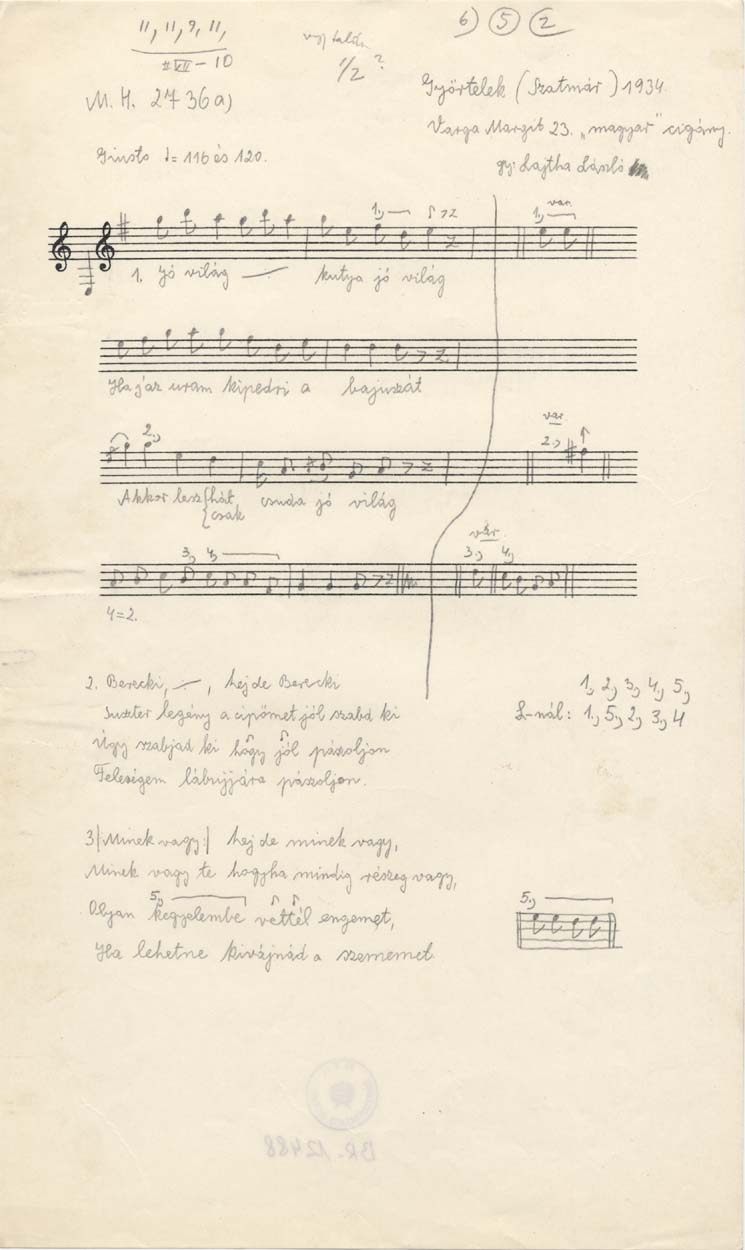 11, 11, 9, 11,
VII - 10
1/2 ?
6) 5 2
M. H. 2736a)
Györtelek (Szatmár) 1934
Varga Margit 23. „magyar" cigány.
gy: Lajtha László
Giusto = 116 és 120.
1, var. 1,
1. Jó világ — kutya jó világ
Ha jaz uram kipedri a bajuszát
2, var 2,
Akkor lesz {hát csuda jó világ
{csak
3, 4, var 3, 4,
4=2.
2. Berecki, —, hej de Berecki
Suszter legény a cipőmet jól szabd ki
Úgy szabjad ki hogy jól pászoljon
Feleségem lábujjára pászoljon.
1, 2, 3, 4, 5,
L-nál: 1, 5, 2, 3, 4
3|:Minek vagy:| hej de minek vagy,
Minek vagy te hogyha mindig részeg vagy,
5,
Olyan kegyelembe vettél engemet,
Ha lehetne kivájnád a szememet.
5,
BR. 12488